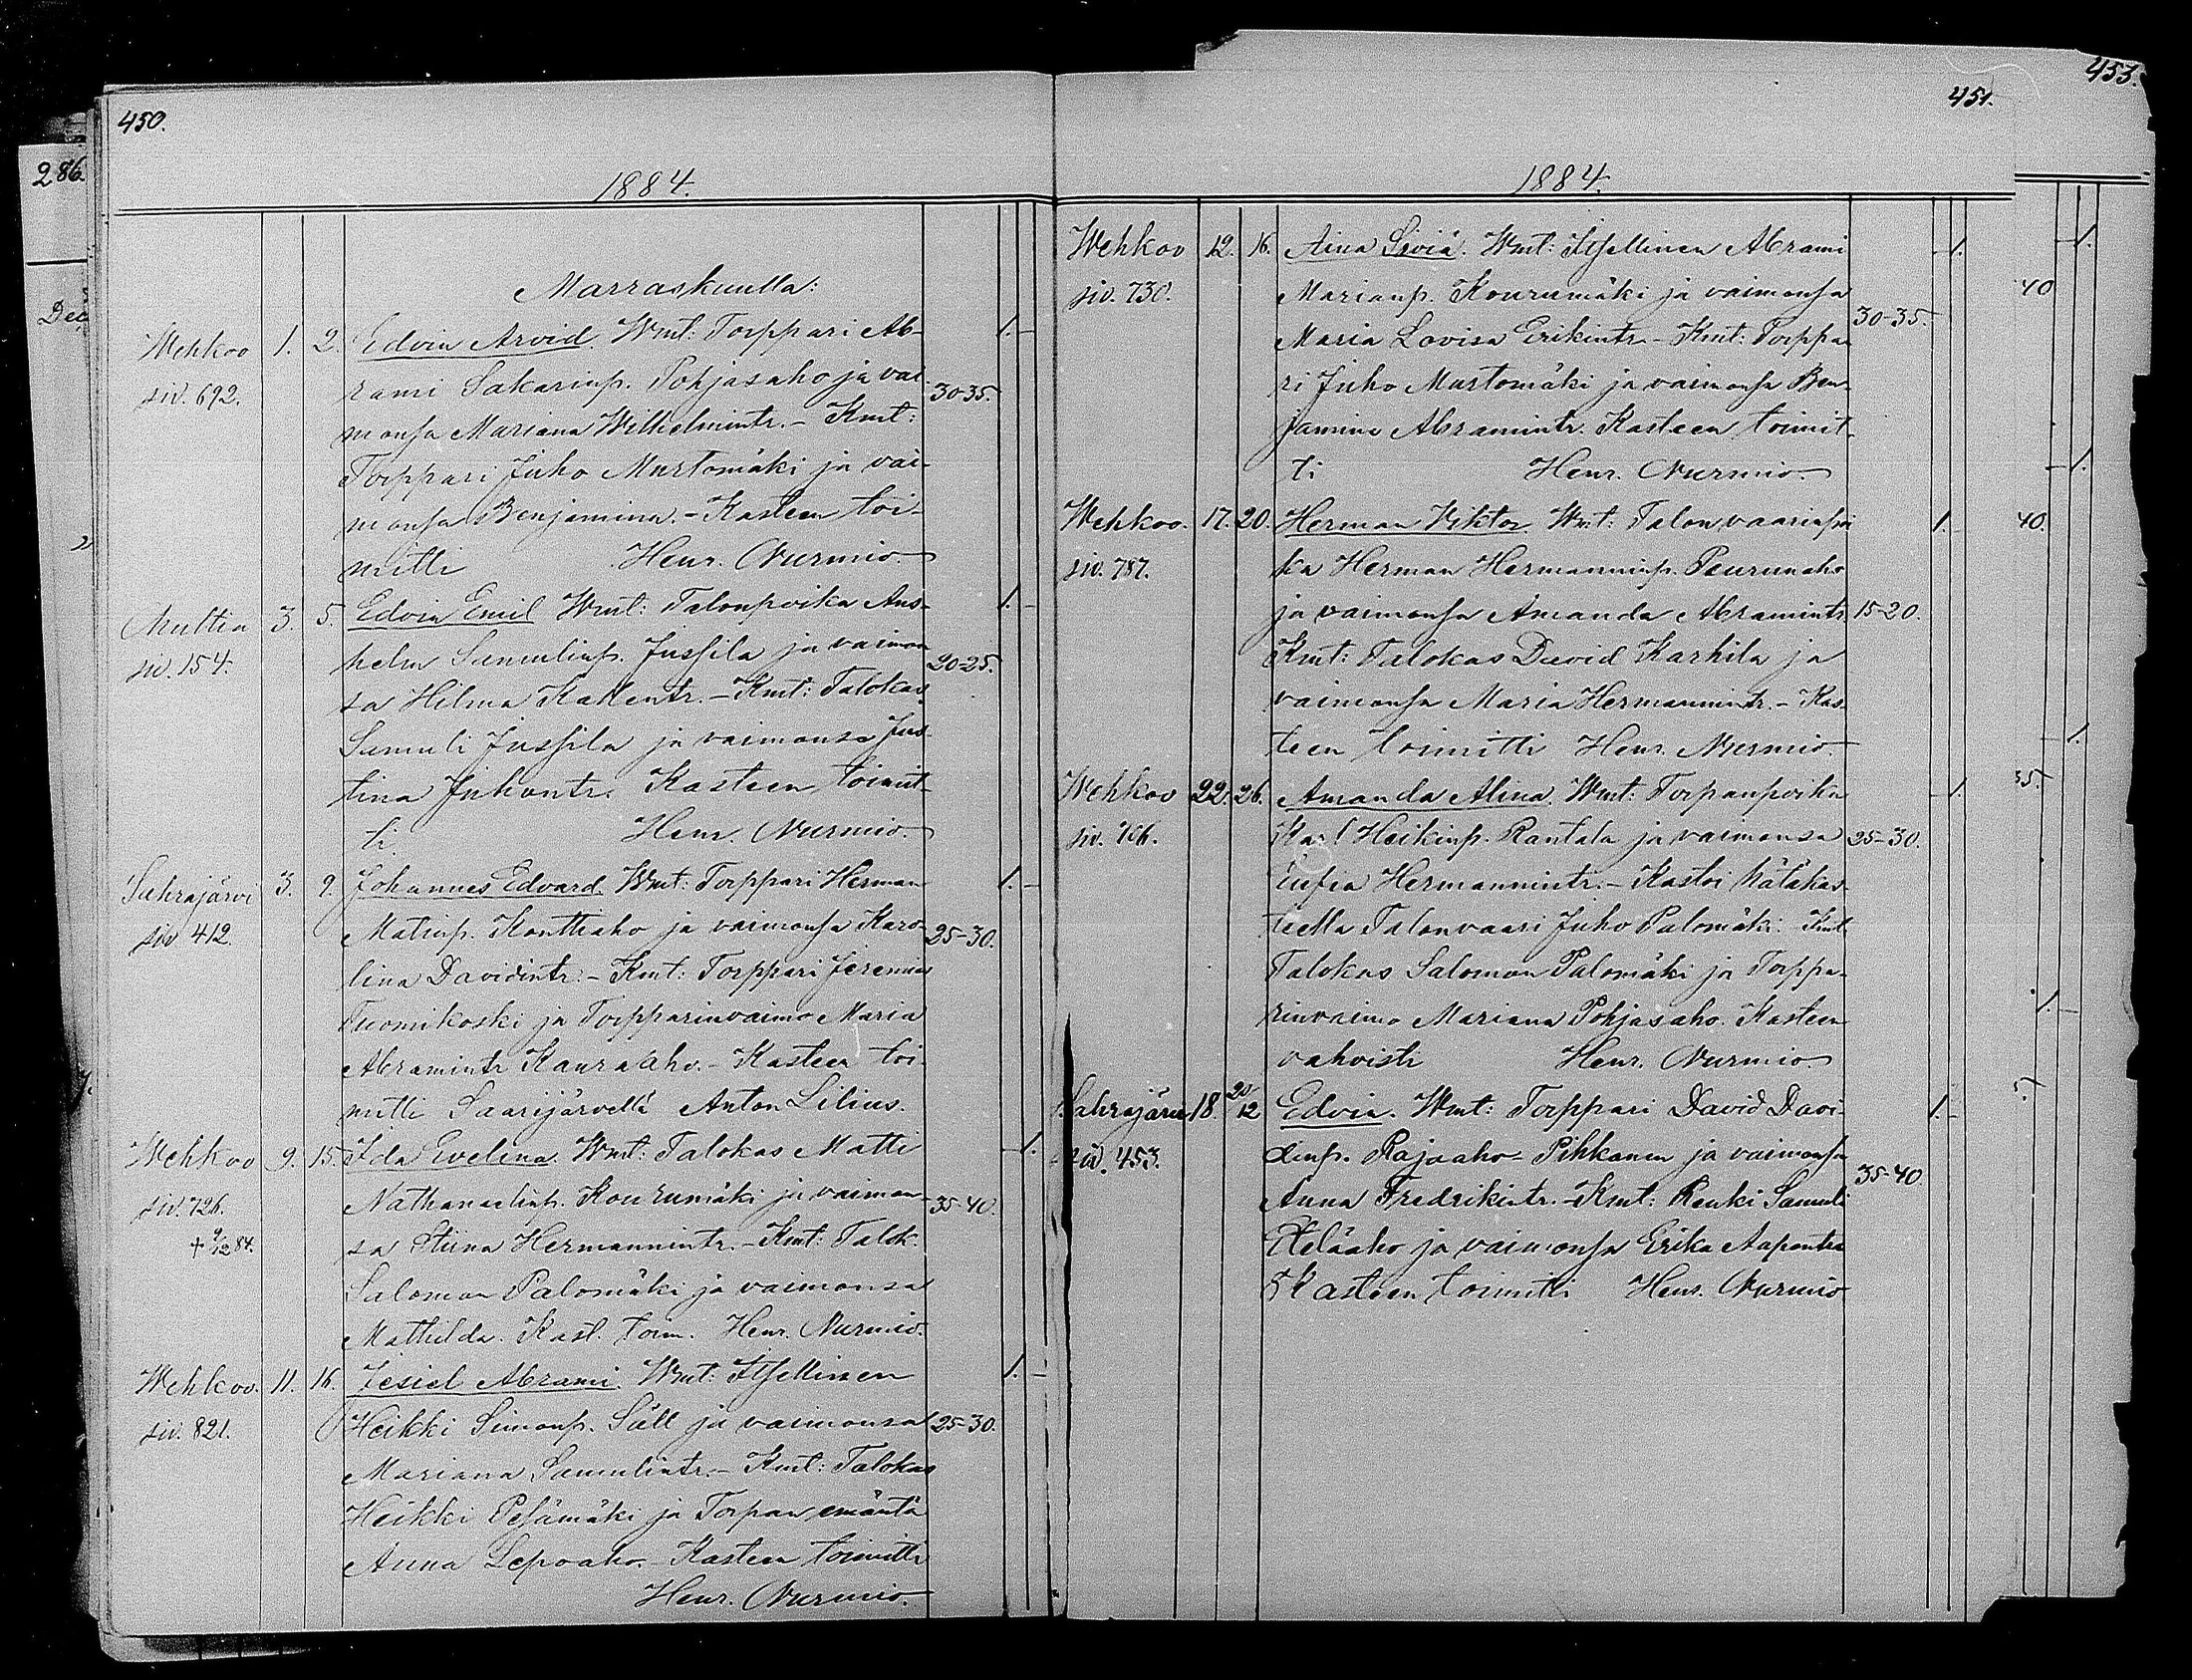 450.
1884.
Marraskuulla:
Wehkoo 1. 2. Edvin Arvid. Wmt: Torppari Ab-
siv. 692. rami Sakarinp. Pohjasaho ja vai- 30-35.
monsa Mariana Wilhelmintr. - Kmt:
Torppari Juho Murtomäki ja vai-
monsa Benjamina. - Kasteen toi-
mitti Henr. Nurmio.
Multia 3. 5. Edvin Emil Wmt: Talonpoika Ans-
siv. 154. helm Samulinp. Jussila ja vaimon 20-25.
sa Hilma Kallentr. - Kmt: Talokas
Samuli Jussila ja vaimonsa Jus-
tina Juhontr. Kasteen toimit-
ti Henr. Nurmio.
Sahrajärvi 3. 9. Johannes Edvard. Wmt: Torppari Herman
siv 412. Matinp. Konttiaho ja vaimonsa Karo- 25-30.
lina Davidintr. - Kmt: Torppari Jeremias
Tuomikoski ja Torpparinvaimo Maria
Abramintr Kauraaho. - Kasteen toi-
mitti Saarijärvellä Anton Lilius.
Wehkoo 9. 15. Ida Evelina. Wmt: Talokas Matti
siv. 726. Nathanaelinp. Kourumäki ja vaimon- 35-40.
+ 9/12 84. sa Stiina Hermannintr. - Kmt: Talok.
Salomon Palomäki ja vaimonsa
Mathilda. Kast. toim. Henr. Nurmio.
Wehkoo. 11. 16. Jesiel Abrami. Wmt: Itsellinen
siv. 821. Heikki Simonp. Säll ja vaimonsa 25-30.
Mariana Samulintr. - Kmt: Talokas
Heikki Pesämäki ja Torpan emäntä
Anna Lepoaho. - Kasteen toimitti
Henr. Nurmio.
451.
1884.
Wehkoo 12. 16. Aina Siviä. Wmt: Itsellinen Abrami
siv. 730. Marianp. Kourumäki ja vaimonsa
Maria Lovisa Erikintr. - Kmt: Torppa- 30-35.
ri Juho Murtomäki ja vaimonsa Ben-
jamina Abramintr. Kasteen toimit-
ti Henr. Nurmio.
Wehkoo. 17. 20. Herman Viktor. Wmt: Talonvaarinpoi
siv. 787. ka Herman Hermanninp. Peurunaho
ja vaimonsa Amanda Abramintr 15-20.
Kmt: Talokas David Karhila ja
vaimonsa Maria Hermannintr. - Kas-
teen toimitti Henr. Nurmio.
Wehkoo 22. 26. Amanda Alina. Wmt: Torpanpoika
siv. Karl Heikinp. Rantala ja vaimonsa 25-30.
Eufia Hermannintr. - Kastoi hätäkas-
teella Talonvaari Juho Palomäki. Kmt
Talokas Salomon Palomäki ja Torppa-
rinvaimo Mariana Pohjasaho. Kasteen
vahvisti Henr. Nurmio.
Sahrajärvi 18. 20/12 Edvin. Wmt: Torppari David Davi-
siv. 453. dinp. Rajaaho-Pihkanen ja vaimonsa
Anna Fredrikintr. - Kmt: Renki Samuli 35-40
Eteläaho ja vaimonsa Erika Aapontr
Kasteen toimitti Henr. Nurmio
453.
40
40.
35.
286.
Dec